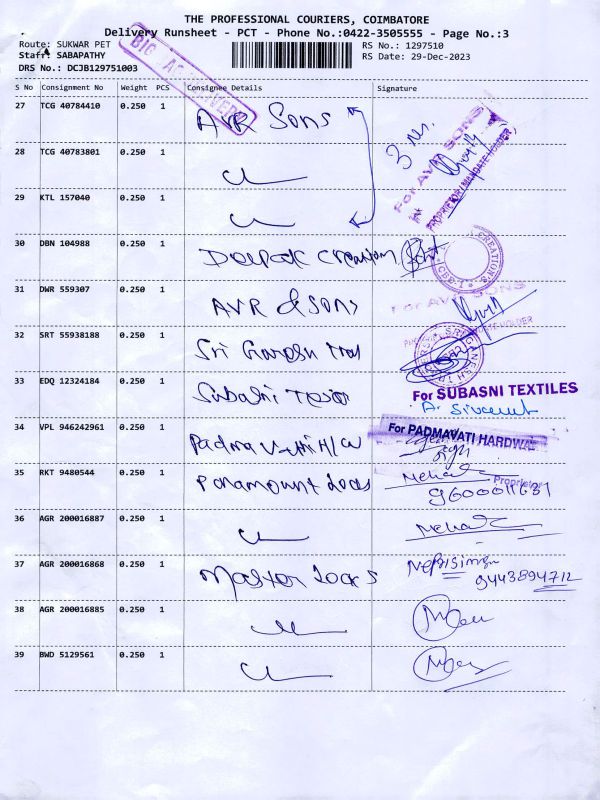 THE PROFESSIONAL COURIERS, COIMBATORE
Delivery Runsheet - PCT - Phone No.:0422-3505555 - Page No.:3
Route: SUKWAR PET RS No.: 1297510
Staff: SABAPATHY RS Date: 29-Dec-2023
DRS No.: DCJB129751003
S No Consignment No Weight PCS Consignee Details Signature
27 TCG 40784410 0.250 1 AVR Sons
28 TCG 40783801 0.250 1
29 KTL 157040 0.250 1
For AVR SONS
PROPRIETOR/MANDATE HOLDER
30 DBN 104988 0.250 1 Deepak Creation
CREATIONS
CBE-1
31 DWR 559307 0.250 1 AVR & Sons
For AVR SONS
32 SRT 55938188 0.250 1 Sri Ganesh
SRI GANESH
33 EDQ 12324184 0.250 1 Subasni
For SUBASNI TEXTILES
34 VPL 946242961 0.250 1 Padmavathi H/W
For PADMAVATI HARDWAR
Proprietor
35 RKT 9480544 0.250 1 Paramount Locks
36 AGR 200016887 0.250 1
37 AGR 200016868 0.250 1 Master Locks
9443894712
38 AGR 200016885 0.250 1
39 BWD 5129561 0.250 1